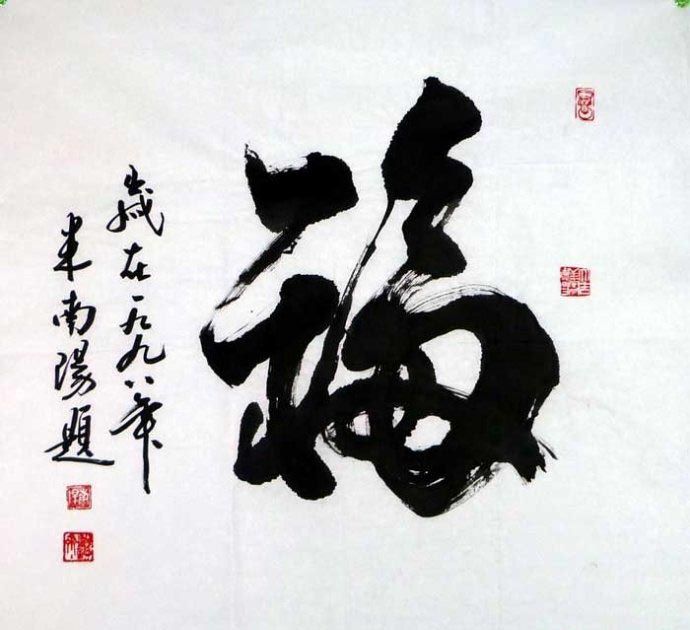 福
歲在一九九八年
米南陽題